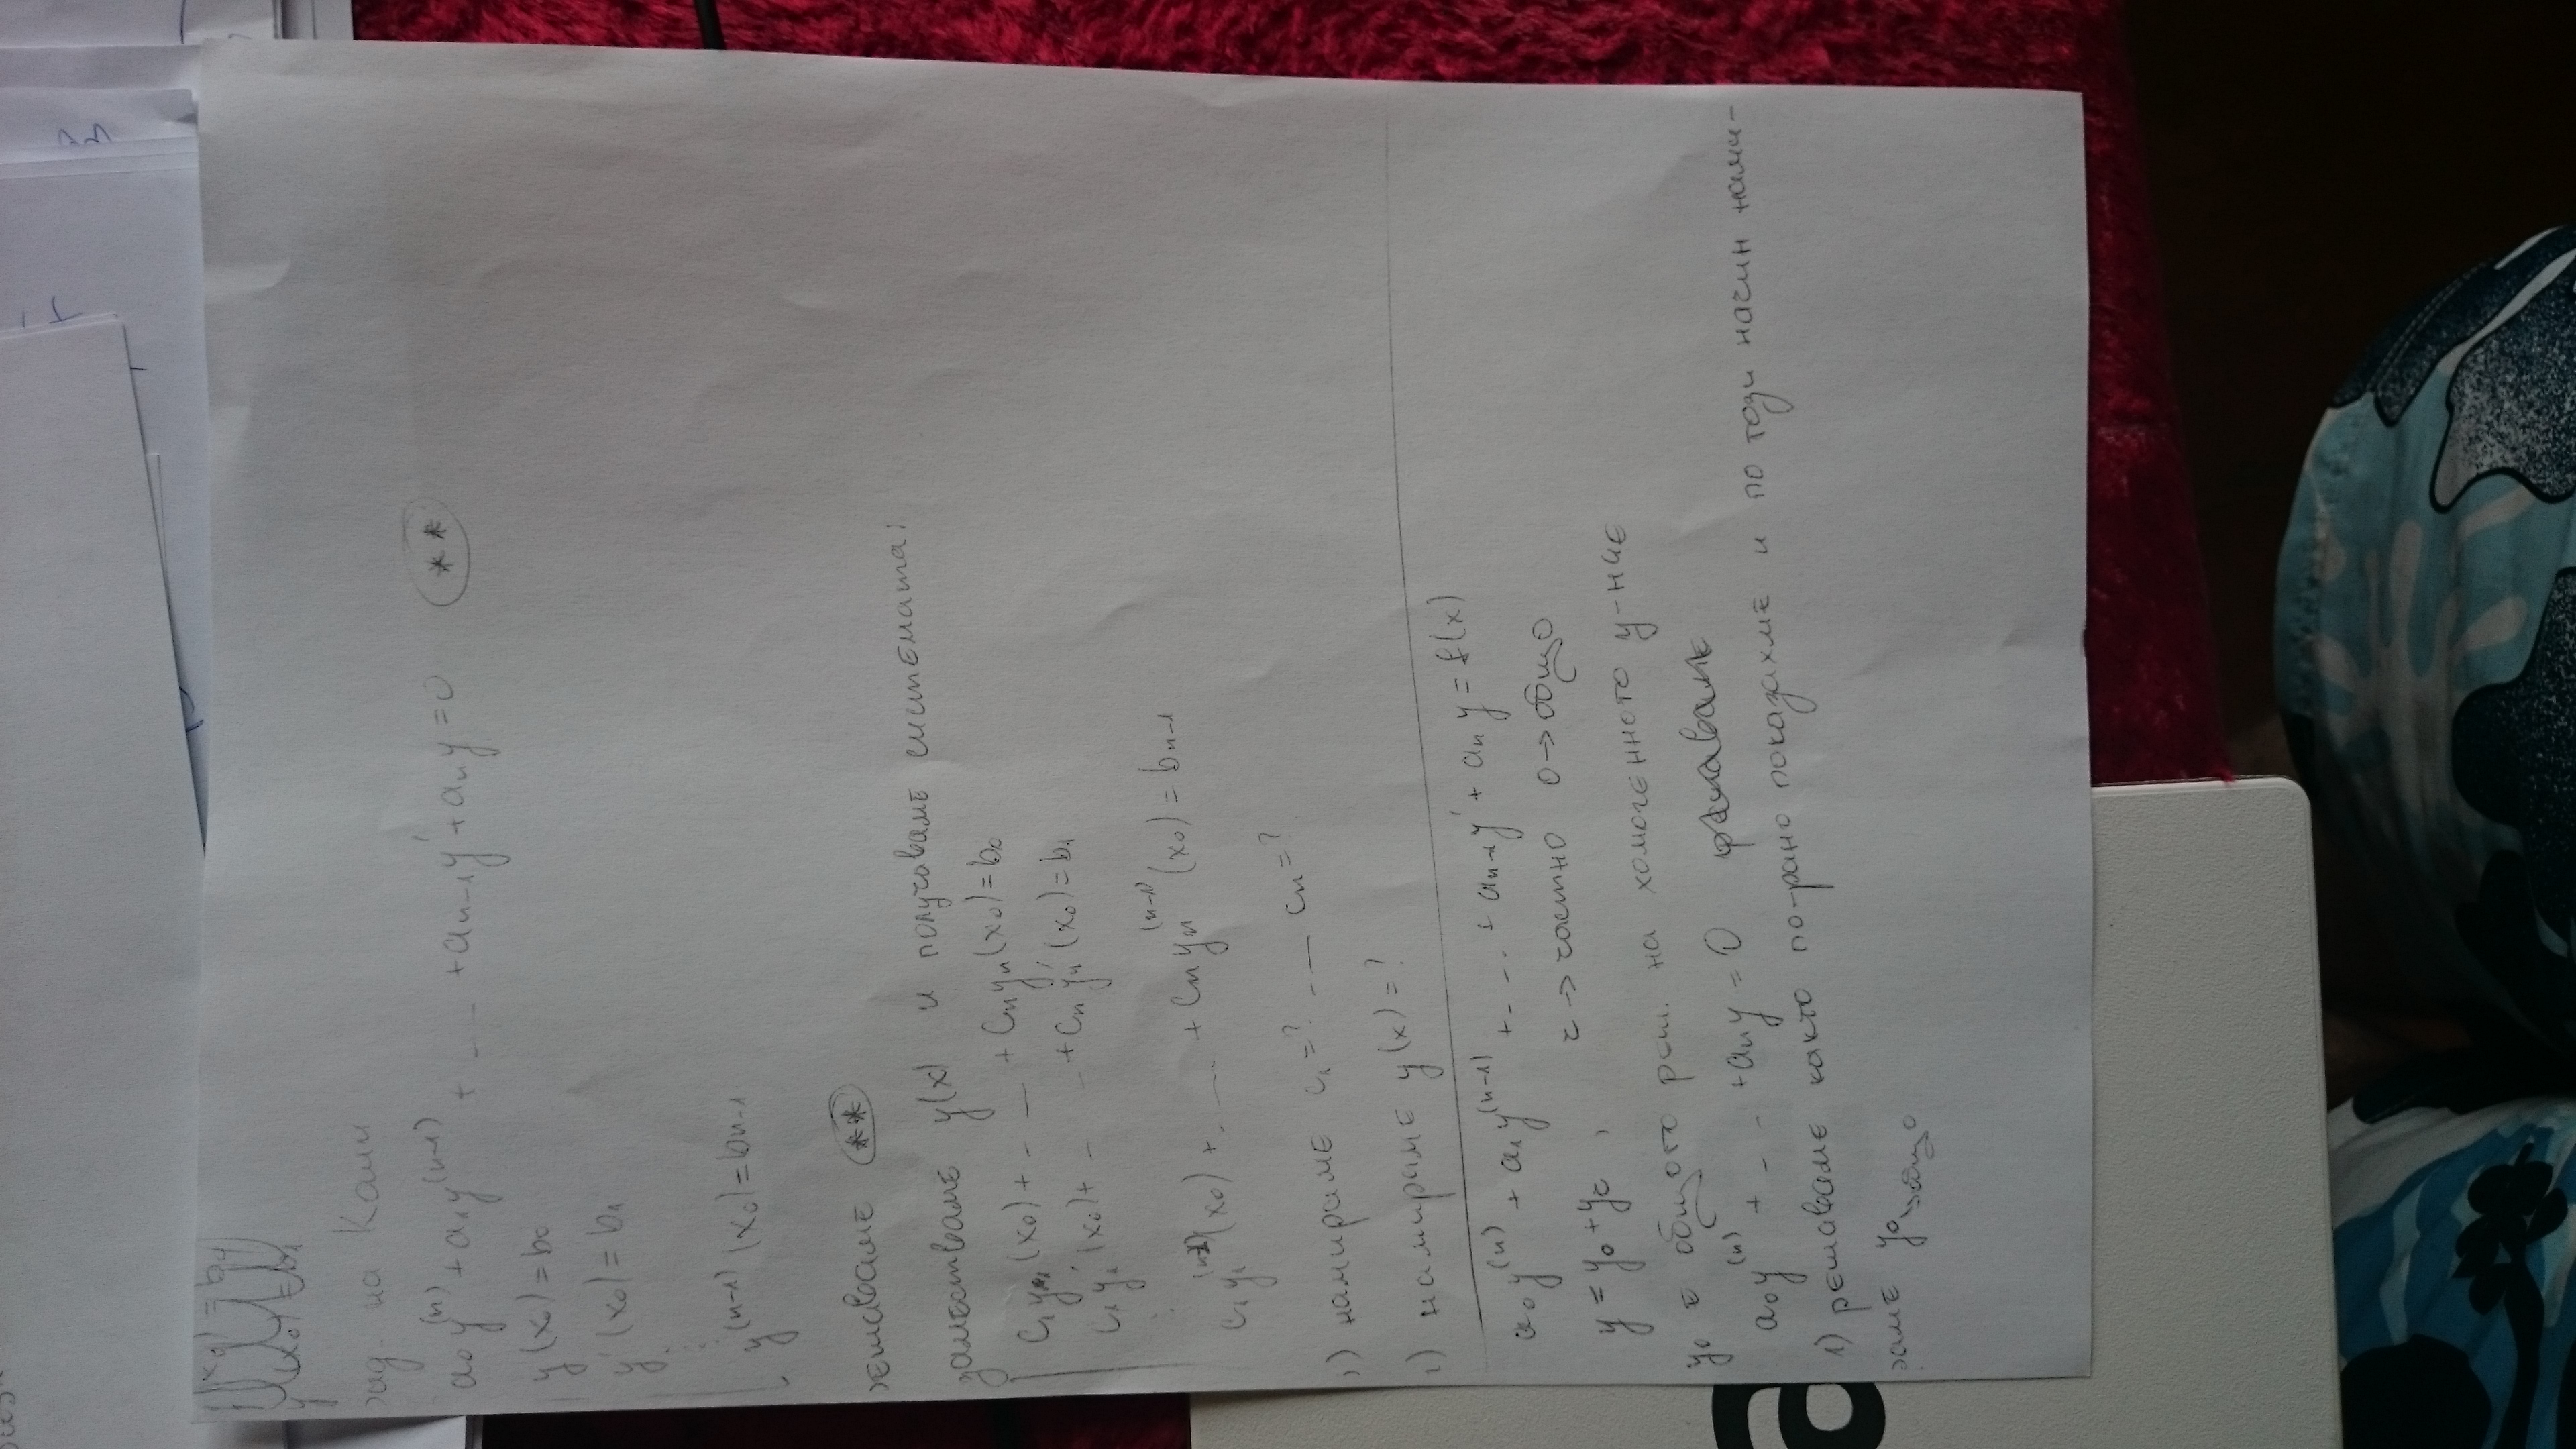 зад. на Коши
a₀y⁽ⁿ⁾ + a₁y⁽ⁿ⁻¹⁾ + --- + aₙ₋₁y' + aₙy = 0 **
y(x₀) = b₀
y'(x₀) = b₁
⋮
y⁽ⁿ⁻¹⁾(x₀) = bₙ₋₁
решаваме **
заместваме y(x) и получаваме системата:
C₁y₁(x₀) + --- + Cₙyₙ(x₀) = b₀
C₁y₁'(x₀) + --- + Cₙyₙ'(x₀) = b₁
⋮
C₁y₁⁽ⁿ⁻¹⁾(x₀) + --- + Cₙyₙ⁽ⁿ⁻¹⁾(x₀) = bₙ₋₁
) намираме c₁ = ? --- cₙ = ?
) намираме y(x) = ?
a₀y⁽ⁿ⁾ + a₁y⁽ⁿ⁻¹⁾ + --- + aₙ₋₁y' + aₙy = f(x)
y = y₀ + yч , ч → частно о → общо
y₀ е общото реш. на хомогенното у-ние
a₀y⁽ⁿ⁾ + --- + aₙy = 0
1) решаваме както по-рано показахме и по този начин нами-
раме y₀ → общо